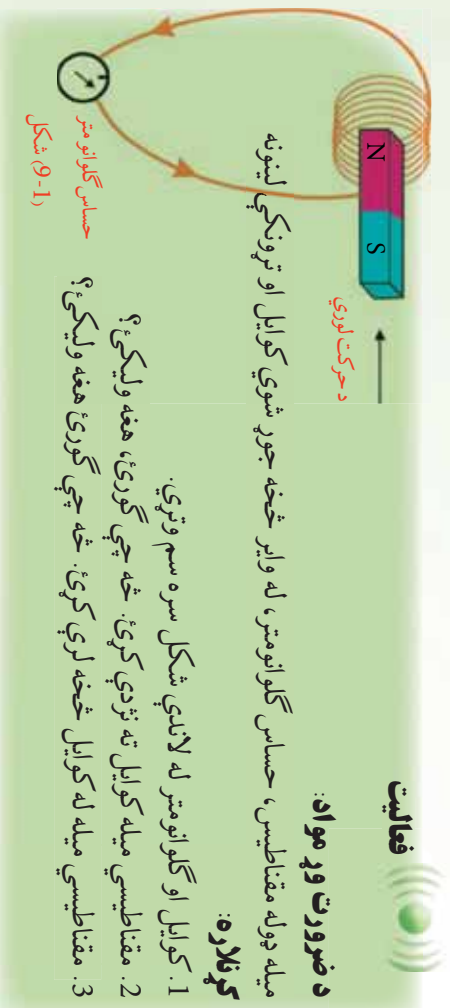 فعالیت
د ضرورت وړ مواد:
میله ډوله مقناطیس، حساس ګلوانومتر، له وایر څخه جوړ شوي کوایل او تړونکي لینونه
کړنلاره:
1. کوایل او ګلوانومتر له لاندې شکل سره سم وتړي.
2. مقناطیسي میله کوایل ته نژدې کړئ. څه چې ګورئ، هغه ولیکئ؟
3. مقناطیسي میله له کوایل څخه لرې کړئ. څه چې ګورئ هغه ولیکئ؟
د حرکت لوري
N
S
حساس ګلوانومتر
(9-1) شکل